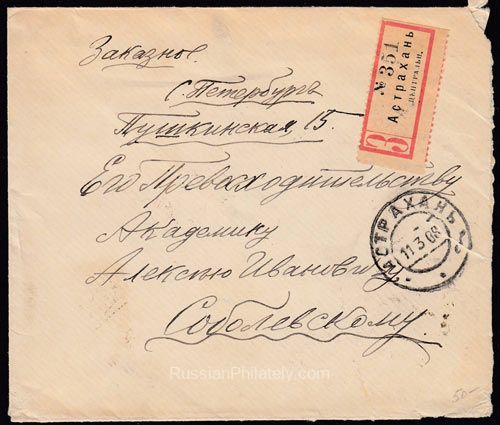 Заказное.
С Петербургъ
Пушкинская, 15.
Его Превосходительству
Академику
Алексѣю Ивановичу
Соболевскому
З
№ 351
Астрахань
центральн.
АСТРАХАНЬ
11.3.08
RussianPhilately.com
50-